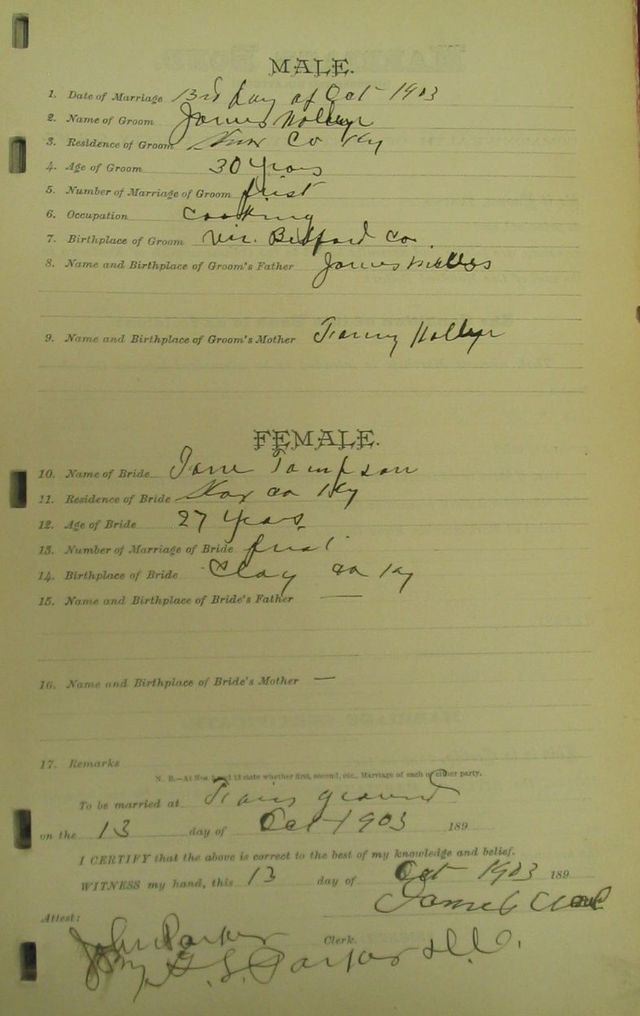 MALE.
1. Date of Marriage 13rd day of Oct 1903
2. Name of Groom James
3. Residence of Groom Knox Co Ky
4. Age of Groom 30 years
5. Number of Marriage of Groom first
6. Occupation Cooking
7. Birthplace of Groom Vir. Bedford Co.
8. Name and Birthplace of Groom's Father James
9. Name and Birthplace of Groom's Mother
FEMALE.
10. Name of Bride Jane Tompson
11. Residence of Bride Knox Co Ky
12. Age of Bride 27 years
13. Number of Marriage of Bride first
14. Birthplace of Bride Clay Co Ky
15. Name and Birthplace of Bride's Father —
16. Name and Birthplace of Bride's Mother —
17. Remarks
N. B.—At Nos 5 and 13 state whether first, second, etc., Marriage of each or either party.
To be married at ground
on the 13 day of Oct 1903 189
I CERTIFY that the above is correct to the best of my knowledge and belief.
WITNESS my hand, this 13 day of Oct 1903 189
James
Attest:
John Parker Clerk.
By G. S. Parker D.C.